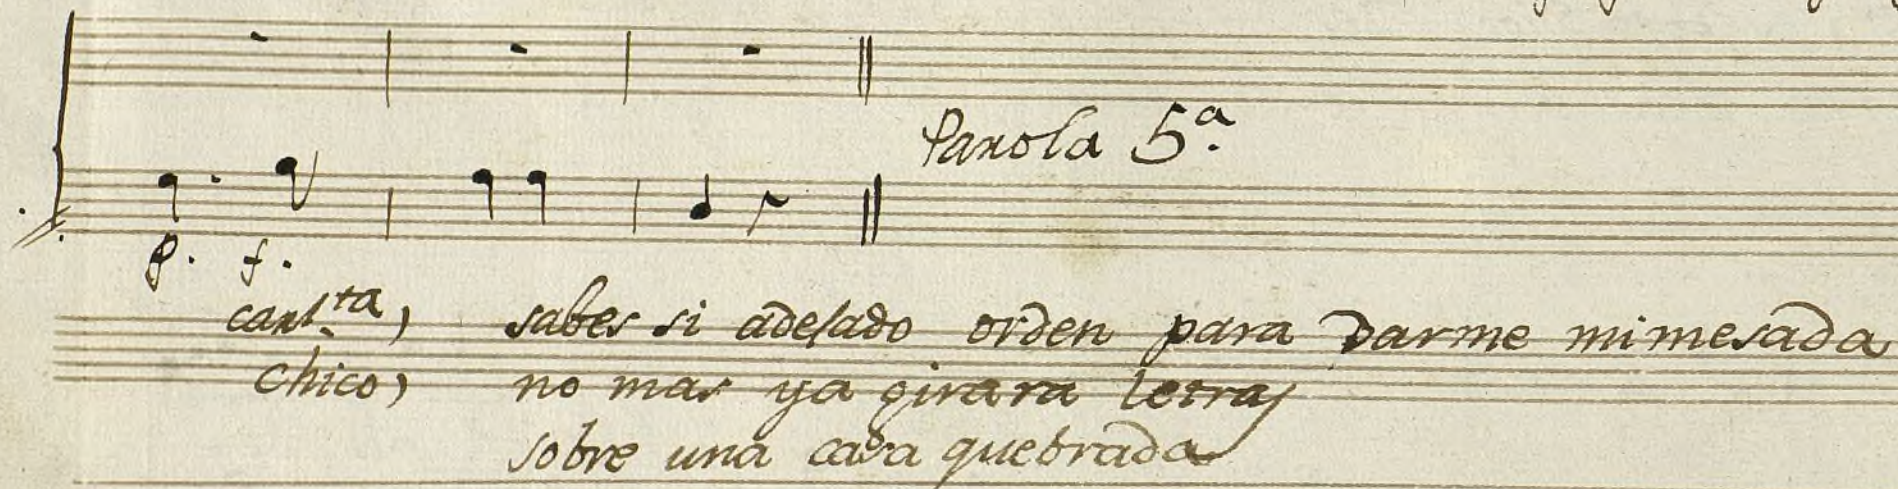 Parola 5.ª
p. f.
cant.ta) sabes si adesado orden para darme mi mesada
chico) no mas ya girara letras
sobre una casa quebrada